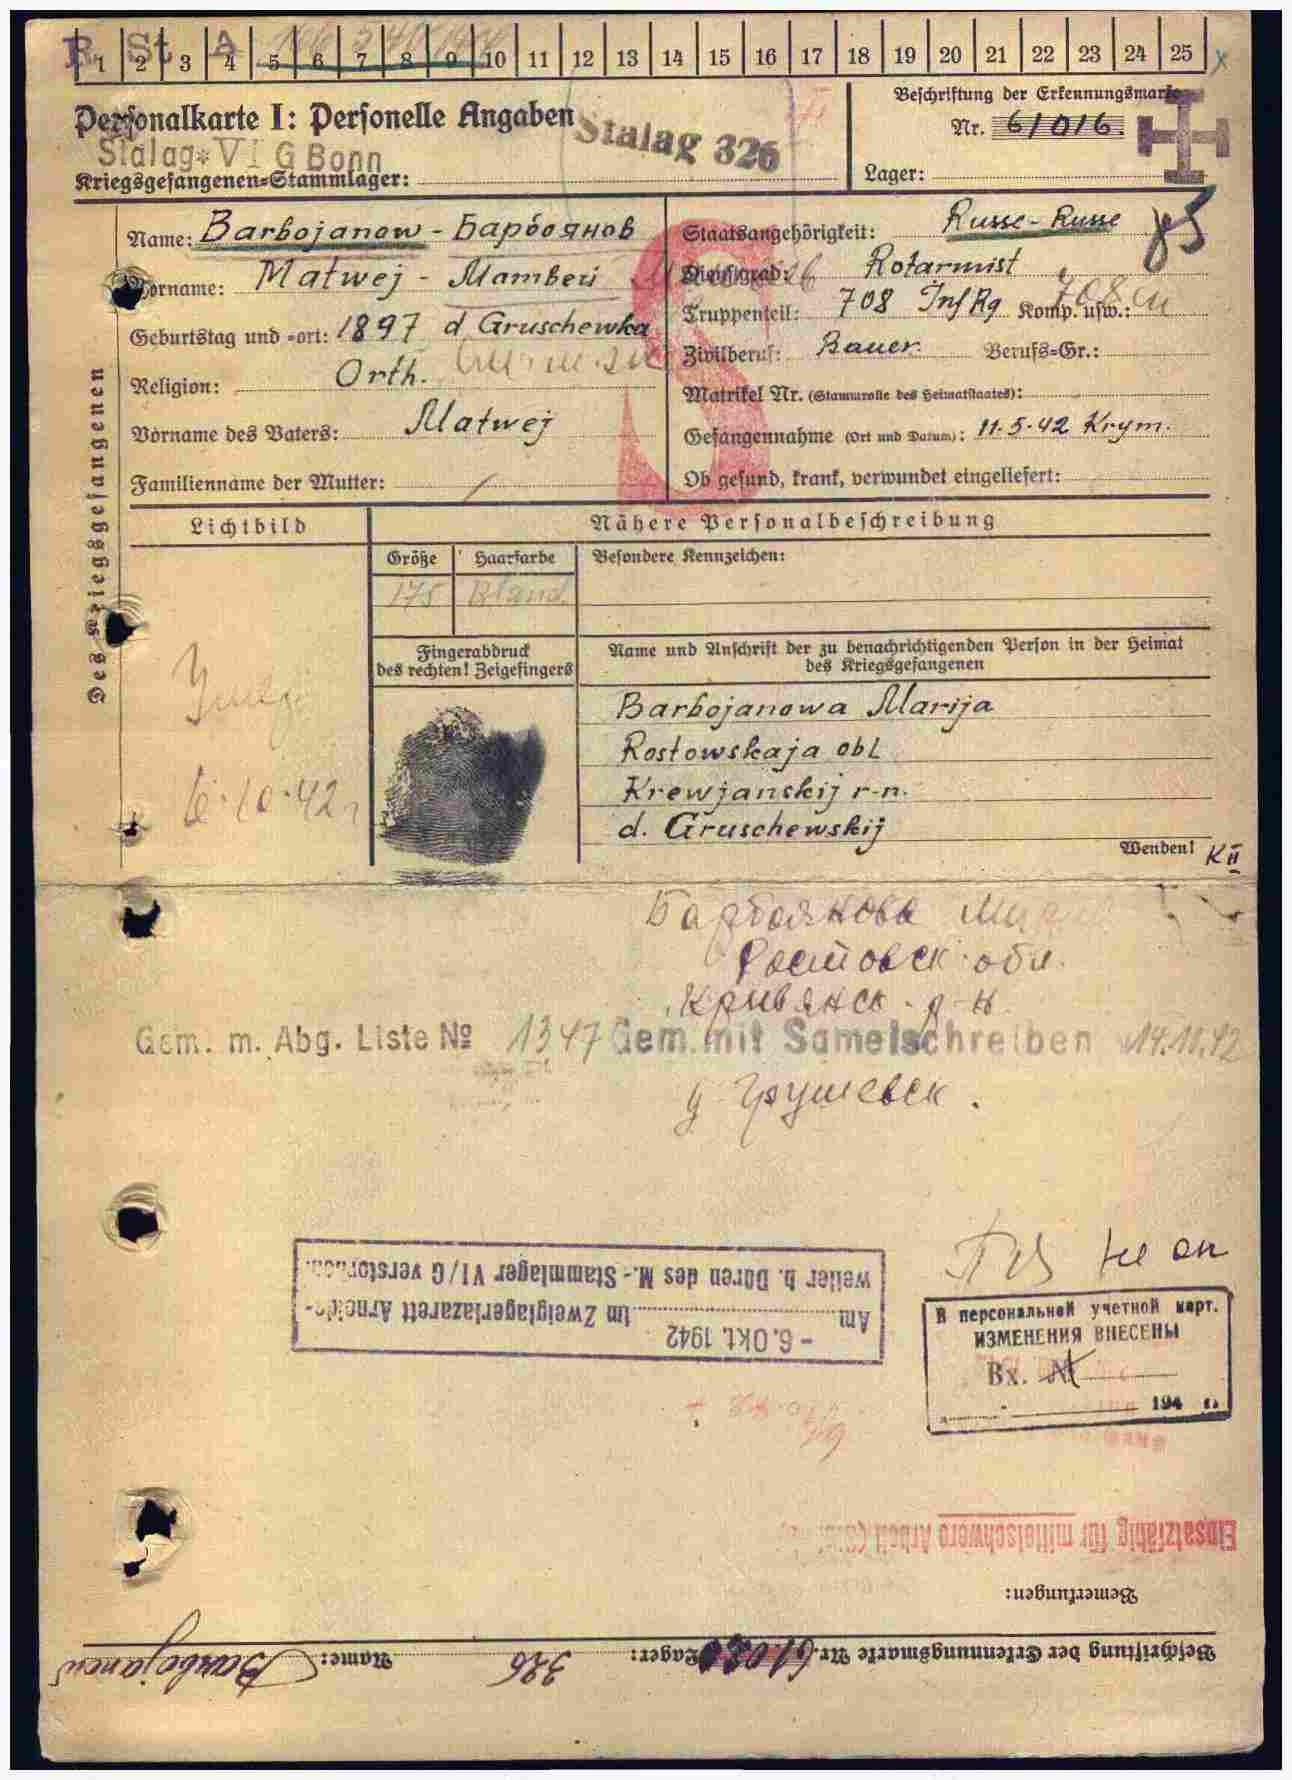 R. St A
1 2 3 4 5 6 7 8 9 10 11 12 13 14 15 16 17 18 19 20 21 22 23 24 25 x
Personalkarte I: Personelle Angaben
Stalag 326
Stalag VI G Bonn
Kriegsgefangenen=Stammlager:
Beschriftung der Erkennungsmarke
Nr. 61016.
Lager:
Des Kriegsgefangenen
Name: Barbojanow - Барбоянов
Vorname: Matwej - Матвей
Geburtstag und =ort: 1897 d Gruschewka
Religion: Orth.
Vorname des Vaters: Matwej
Familienname der Mutter:
Staatsangehörigkeit: Russe-Russe
Dienstgrad: Rotarmist
Truppenteil: 708 Inf Rg Komp. usw.: 708
Zivilberuf: Bauer. Berufs=Gr.:
Matrikel Nr. (Stammrolle des Heimatstaates):
Gefangennahme (Ort und Datum): 11.5.42 Krym.
Ob gesund, krank, verwundet eingeliefert:
Lichtbild
Nähere Personalbeschreibung
Größe
Haarfarbe
Besondere Kennzeichen:
175
Fingerabdruck
des rechten! Zeigefingers
Name und Anschrift der zu benachrichtigenden Person in der Heimat
des Kriegsgefangenen
Barbojanowa Marija
Rostowskaja obl
Krewjanskij r-n.
d. Gruschewskij
Wenden!
K II
6.10.42
Ростовск обл.
Кривянск. р-н.
Gem. m. Abg. Liste № 1347 Gem. mit Samelschreiben 14.10.42
Грушевск.
Am - 6. Okt. 1942 im Zweiglagerlazarett Arnolds-
weiler b. Düren des M.-Stammlager VI/G verstorben.
В персональной учетной карт.
ИЗМЕНЕНИЯ ВНЕСЕНЫ
Вх. №
194 г.
Einsatzfähig für mittelschwere Arbeit
Bemerkungen:
Beschriftung der Erkennungsmarke Nr. Lager: 326 Name: Barbojanow